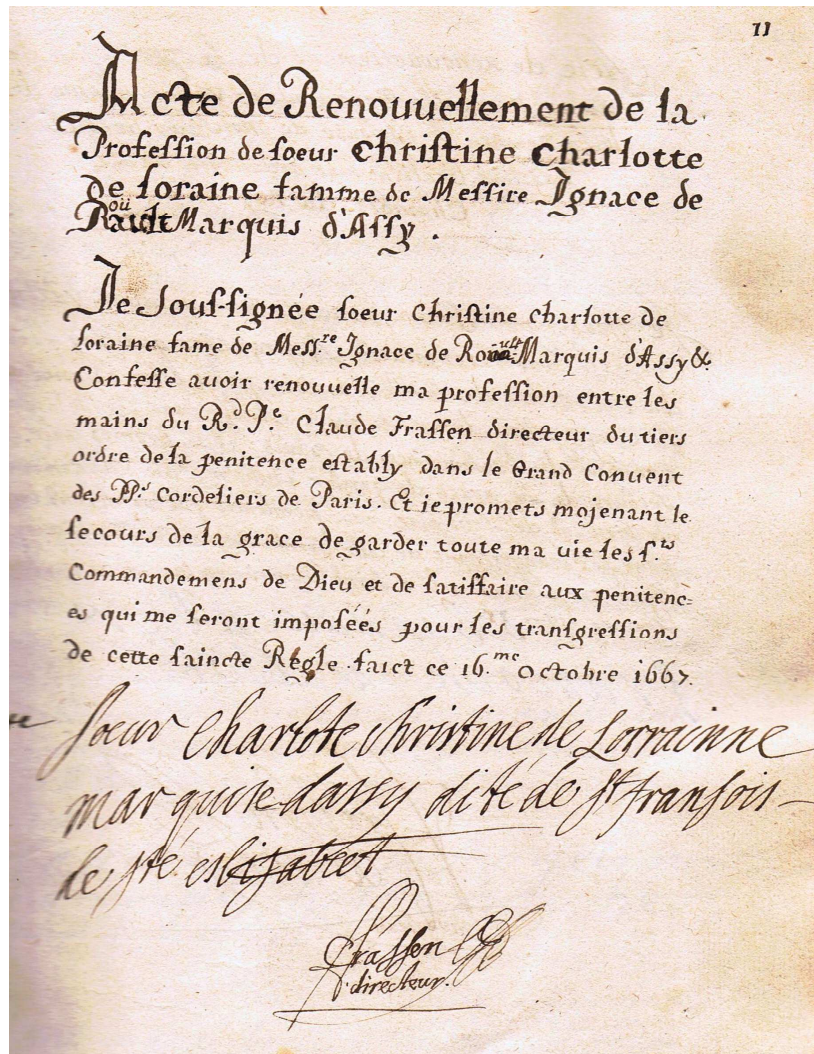 11
Acte de Renouuellement de la
Profession de soeur Christine Charlotte
de loraine famme de Messire Ignace de
Roüault Marquis d'Assy.
Je Sous-signée soeur Christine Charlotte de
loraine fame de Mess.re Ignace de Roüault Marquis d'Assy &.
Confesse auoir renouuelle ma profession entre les
mains du R.d P.e Claude Frassen directeur du tiers
ordre de la penitence estably dans le Grand Conuent
des PP.s Cordeliers de Paris. Et ie promets mojenant le
secours de la grace de garder toute ma vie les s.ts
Commandemens de Dieu et de satisfaire aux penitenc=
es qui me seront imposéés pour les transgressions
de cette saincte Regle. faict ce 16.me Octobre 1667.
soeur Charlote Christine de Lorrainne
marquise dassy dité de st fransois
de sté eslisabeet
Frassen
directeur.